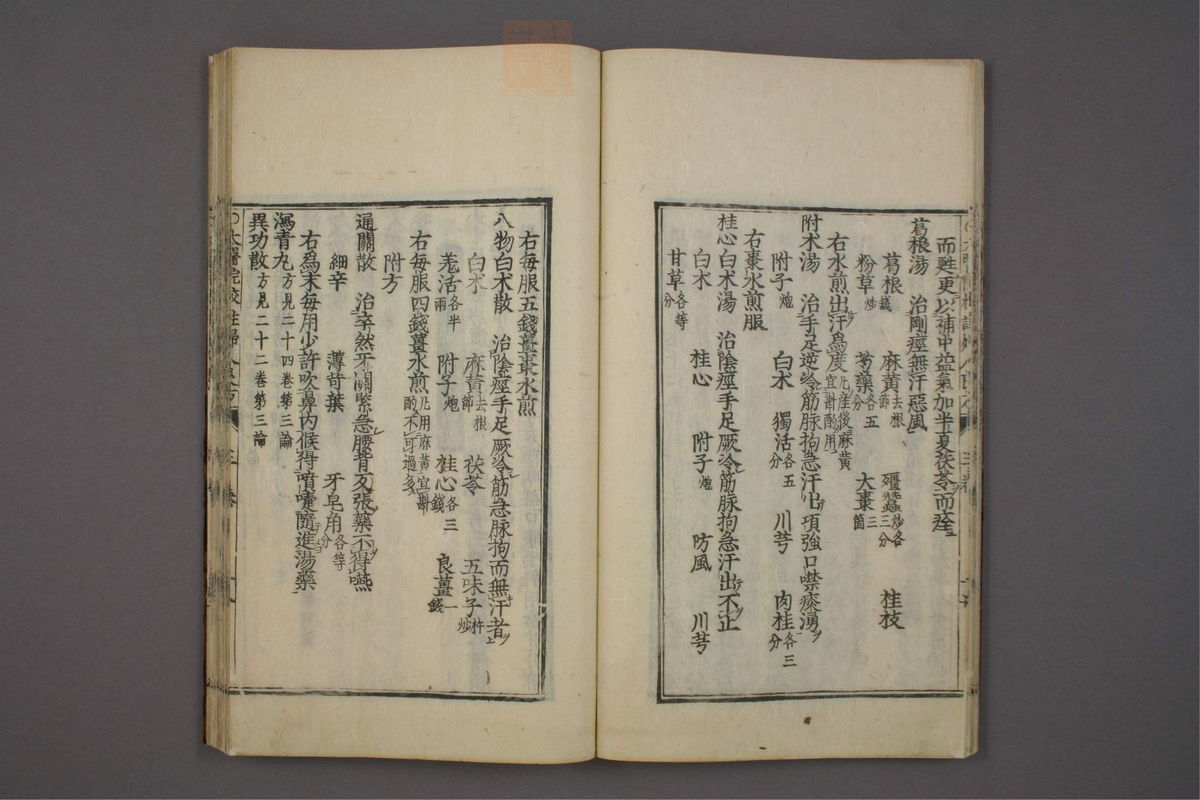 而甦更以補中益氣加半夏茯苓而痊
葛根湯　治剛痙無汗惡風
葛根錢　麻黃去根節　殭蠶炒各三分　桂枝
粉草炒　芍藥各五分　大棗三箇
右水煎出汗爲度凡產後麻黃宜斟酌用
附朮湯　治手足逆冷筋脉拘急汗出項強口噤痰湧
附子炮　白朮　獨活各五分　川芎　肉桂各三分
右棗水煎服
桂心白朮湯　治陰痙手足厥冷筋脉拘急汗出不止
白朮　桂心　附子炮　防風　川芎
甘草各等分
右每服五錢薑棗水煎
八物白朮散　治陰痙手足厥冷筋急脉拘而無汗者
白朮　麻黃去根節　茯苓　五味子杵炒
羗活各半兩　附子炮　桂心各三錢　良薑一錢
右每服四錢薑水煎凡用麻黃宜斟酌不可過多
附方
通關散　治卒然牙關緊急腰背反張藥不得嚥
細辛　薄苛葉　牙皂角各等分
右爲末每用少許吹鼻内候得噴嚏隨進湯藥
瀉青丸方見二十四卷第三論
異功散方見二十二卷第三論